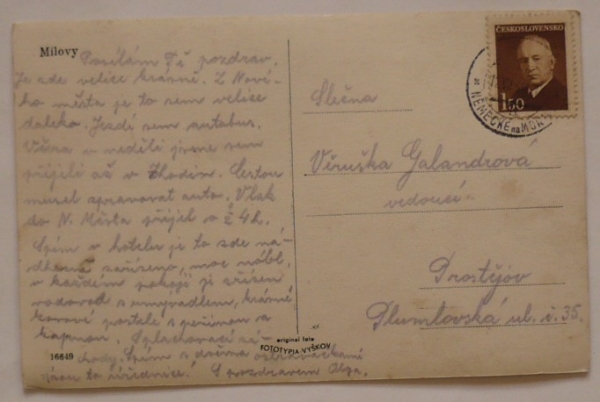 Milovy
Posílám Tě pozdrav.
Je zde velice krásně. Z Nové-
ho města je to sem velice
daleko. Jezdí sem autobus.
Včera v neděli jsme sem
přijeli až v hodin. Cestou
musel spravovat auto. Vlak
do N. Města přijel o 4 h.
Spím v hotelu je to zde ná-
dherně zařízeno, moc nóbl,
v každém pokoji je zřízen
vodovod s umyvadlem, krásné
kovové postele s peřinou a
kapnou. Splachovací zá-
chody. Spím s dvěma
jsou to úřednice. S pozdravem Olga.
16649
original foto
FOTOTYPIA-VYŠKOV
ČESKOSLOVENSKO
1.50
NĚMECKÉ na MOR
Slečna
Věruška Galandrová
vedoucí
Prostějov
Plumlovská ul. č. 35.